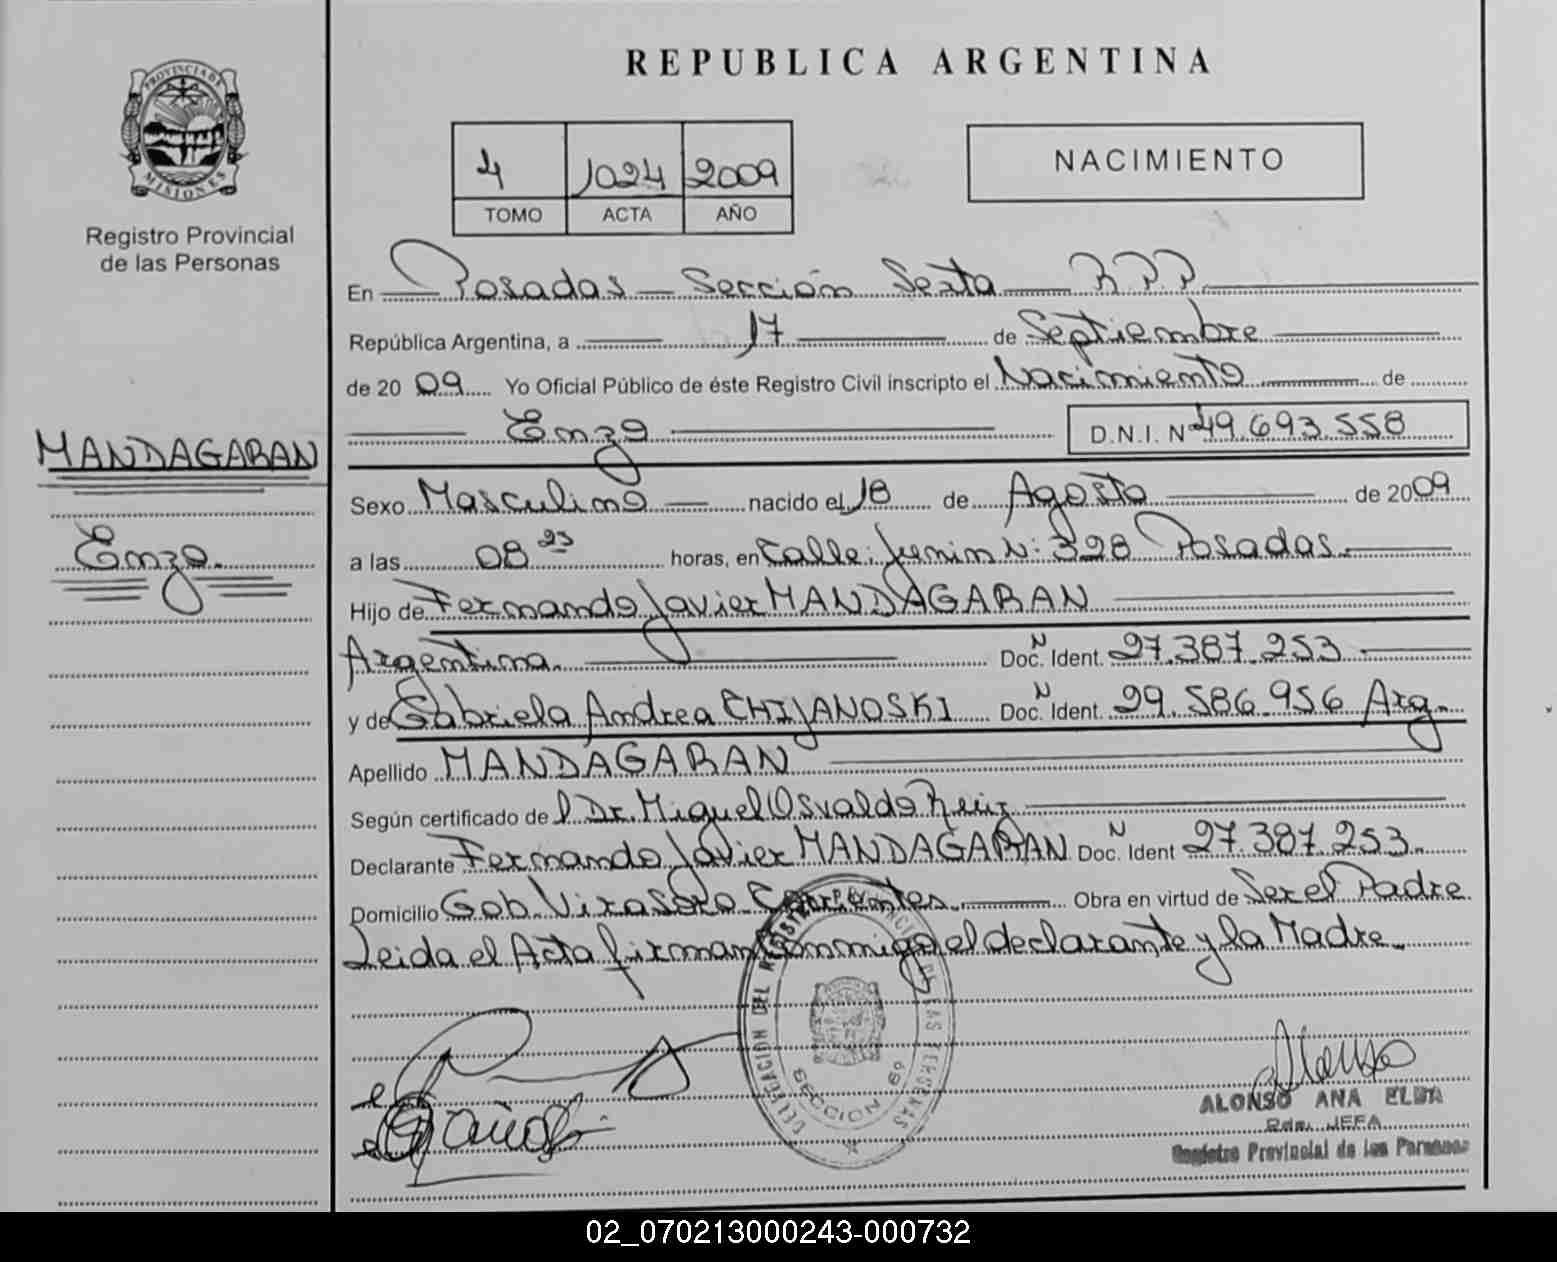 PROVINCIA DE
MISIONES
Registro Provincial
de las Personas
MANDAGARAN
Enzo.
REPUBLICA ARGENTINA
4 1024 2009
TOMO ACTA AÑO
NACIMIENTO
En Posadas - Sección Sexta - R.P.P.
República Argentina, a 17 de Septiembre
de 2009 Yo Oficial Público de éste Registro Civil inscripto el Nacimiento de
Enzo D.N.I. Nº 49.693.558
Sexo Masculino nacido el 18 de Agosto de 2009
a las 08 23 horas, en Calle: Junin N: 328 Posadas.
Hijo de Fernando Javier MANDAGARAN
Argentina. Doc. Nº Ident. 27.387.253
y de Gabriela Andrea CHIJANOSKI Doc. Nº Ident. 29.586.956 Arg.
Apellido MANDAGARAN
Según certificado del Dr. Miguel Osvaldo Ruiz
Declarante Fernando Javier MANDAGARAN Doc. Nº Ident 27.387.253.
Domicilio Gob. Virasoro Corrientes. Obra en virtud de Ser el Padre
Leida el Acta firman Conmigo el declarante y la Madre.
DELEGACION DEL REGISTRO PROVINCIAL DE LAS PERSONAS
SECCION 6º
ALONSO ANA ELBA
JEFA
Registro Provincial de las Personas
02_070213000243-000732